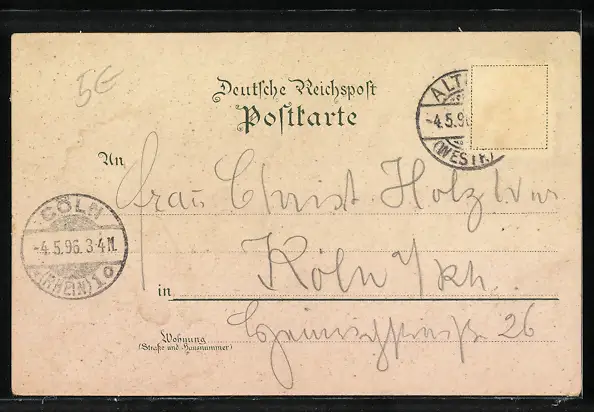 5€
Deutsche Reichspost
Postkarte
ALT
-4.5.96
(WESTF.)
An Frau Christ. Holz
CÖLN
-4.5.96. 3-4 N.
(RHEIN) 1 o
in Köln a/Rh.
Wohnung
(Straße und Hausnummer)
26